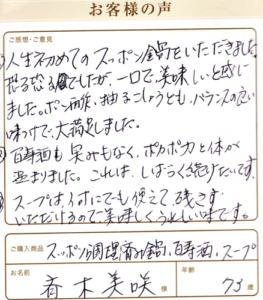 お客様の声
ご感想・ご意見
①人生初めてのスッポン鍋をいただきました。
恐る恐るでしたが、一口で、美味しいと感じ
ました。ポン酢、柚子こしょうとも、バランスの良い
味わいで、大満足しました。
②百寿酒も臭みもなく、ポカポカと体が
温まりました。これは、しばらく続けたいです。
③スープは何にでも使えて、残さず
いただけるので、美味しくうれしい味です。
ご購入商品
スッポン調理済み鍋、百寿酒、スープ
お名前
斉木美咲 様
年齢
73歳